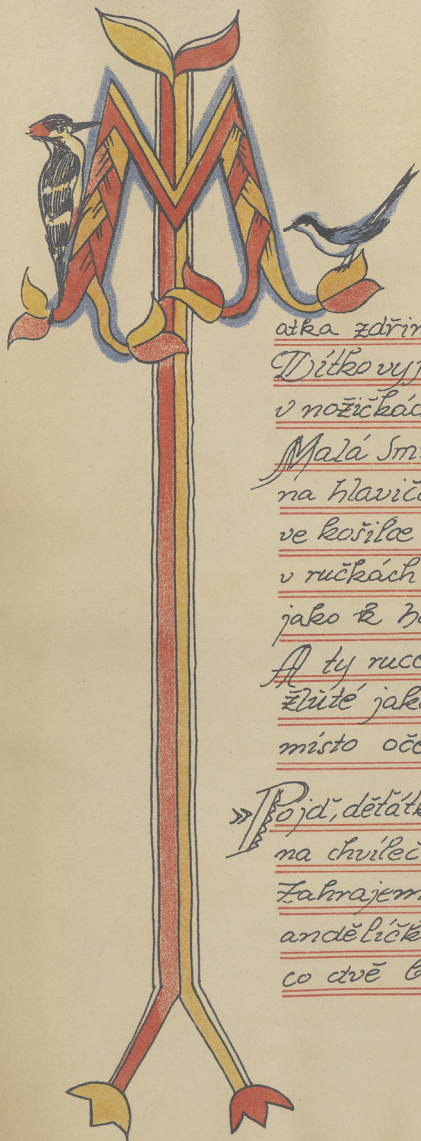 M
atka zdřim
Dítko vyj
v nožičkác
Malá Sm
na hlavič
ve košilce
v ručkách
jako k h
A ty ruce
žluté jako
místo oče
»Pojď, děťátk
na chvíleč
Zahrajem
andělíčk
co dvě b